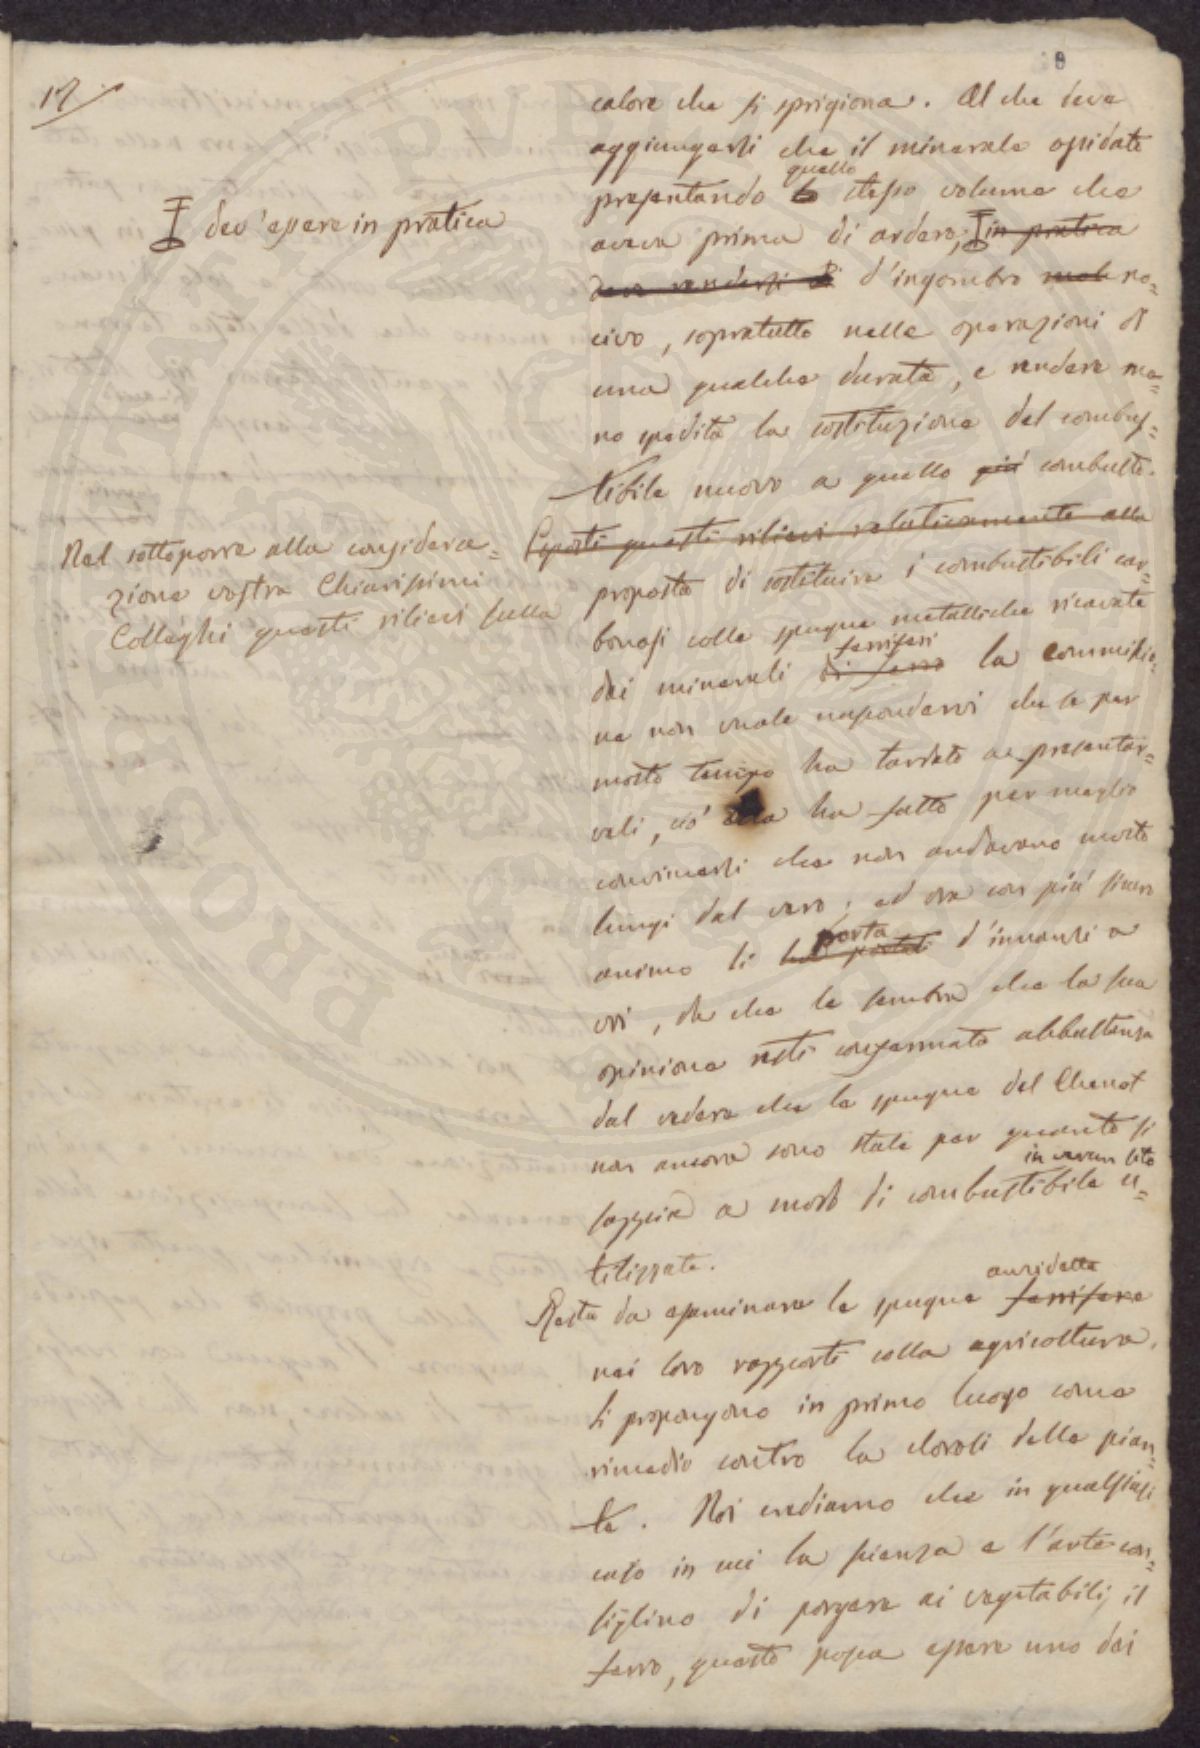 17
8
calore che si sprigiona. Al che deve
aggiungersi che il minerale ossidato
quello
presentando lo stesso volume che
aveva prima di ardere, in pratica
deve rendersi di d'ingombro no=
civo, sopratutto nelle operazioni di
una qualche durata, e rendere me=
no spedita la sostituzione del combus=
tibile nuovo a quello già combusto.
Esposti questi rilievi relativamente alla
proposta di sostituire i combustibili car=
bonosi colle spugne metalliche ricavate
ferriferi
dai minerali di ferro la Commissio=
ne non vuole nascondervi che se per
molto tempo ha tardato a presentar=
veli, ciò ella ha fatto per meglio
convincersi che non andavano molto
lungi dal vero; ed ora con più sicuro
porta
animo li ha portati d'innanzi a
voi, da che le sembra che la sua
opinione resti confermata abbastanza
dal vedere che le spugne del Chenot
non ancora sono state per quanto si
in verun sito
sappia a modo di combustibile u=
tilizzate.
anzidette
Resta da esaminare le spugne ferrifere
nei loro rapporti colla agricoltura.
Si propongono in primo luogo come
rimedio contro la clorosi delle pian=
te. Noi crediamo che in qualsiasi
caso in cui la scienza e l'arte con=
siglino di porgere ai vegetabili il
ferro, questo possa essere uno dei
dev'essere in pratica
Nel sottoporre alla considera=
zione vostra Chiarissimi
Colleghi questi rilievi sulla